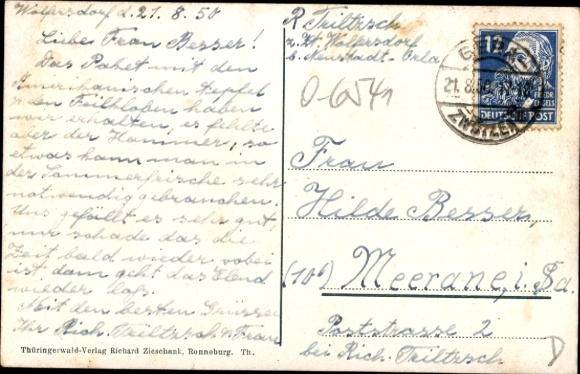 Wolfersdorf d. 21.8.50
Liebe Frau Besser!
Das Paket mit den
Amerikanischen Aepfel
u den Feilkloben haben
wir erhalten, es fehlte
aber der Hammer, so
etwas kann man in
der Sommerfrische sehr
notwendig gebrauchen.
Uns gefällt es sehr gut,
nur schade das die
Zeit bald wieder vobei
ist dann geht das Elend
wieder loß.
Mit den besten Grüssen
Ihr Rich. Teiltzsch u Frau
Thüringerwald-Verlag Richard Zieschank, Ronneburg. Th.
R. Teiltzsch
z. Zt. Wolfersdorf
b. Neustadt-Orla
12
DEUTSCHE POST
21.8.50
Frau
Hilde Besser,
(10b) Meerane, i. Sa.
Poststrasse 2
bei Rich. Teiltzsch